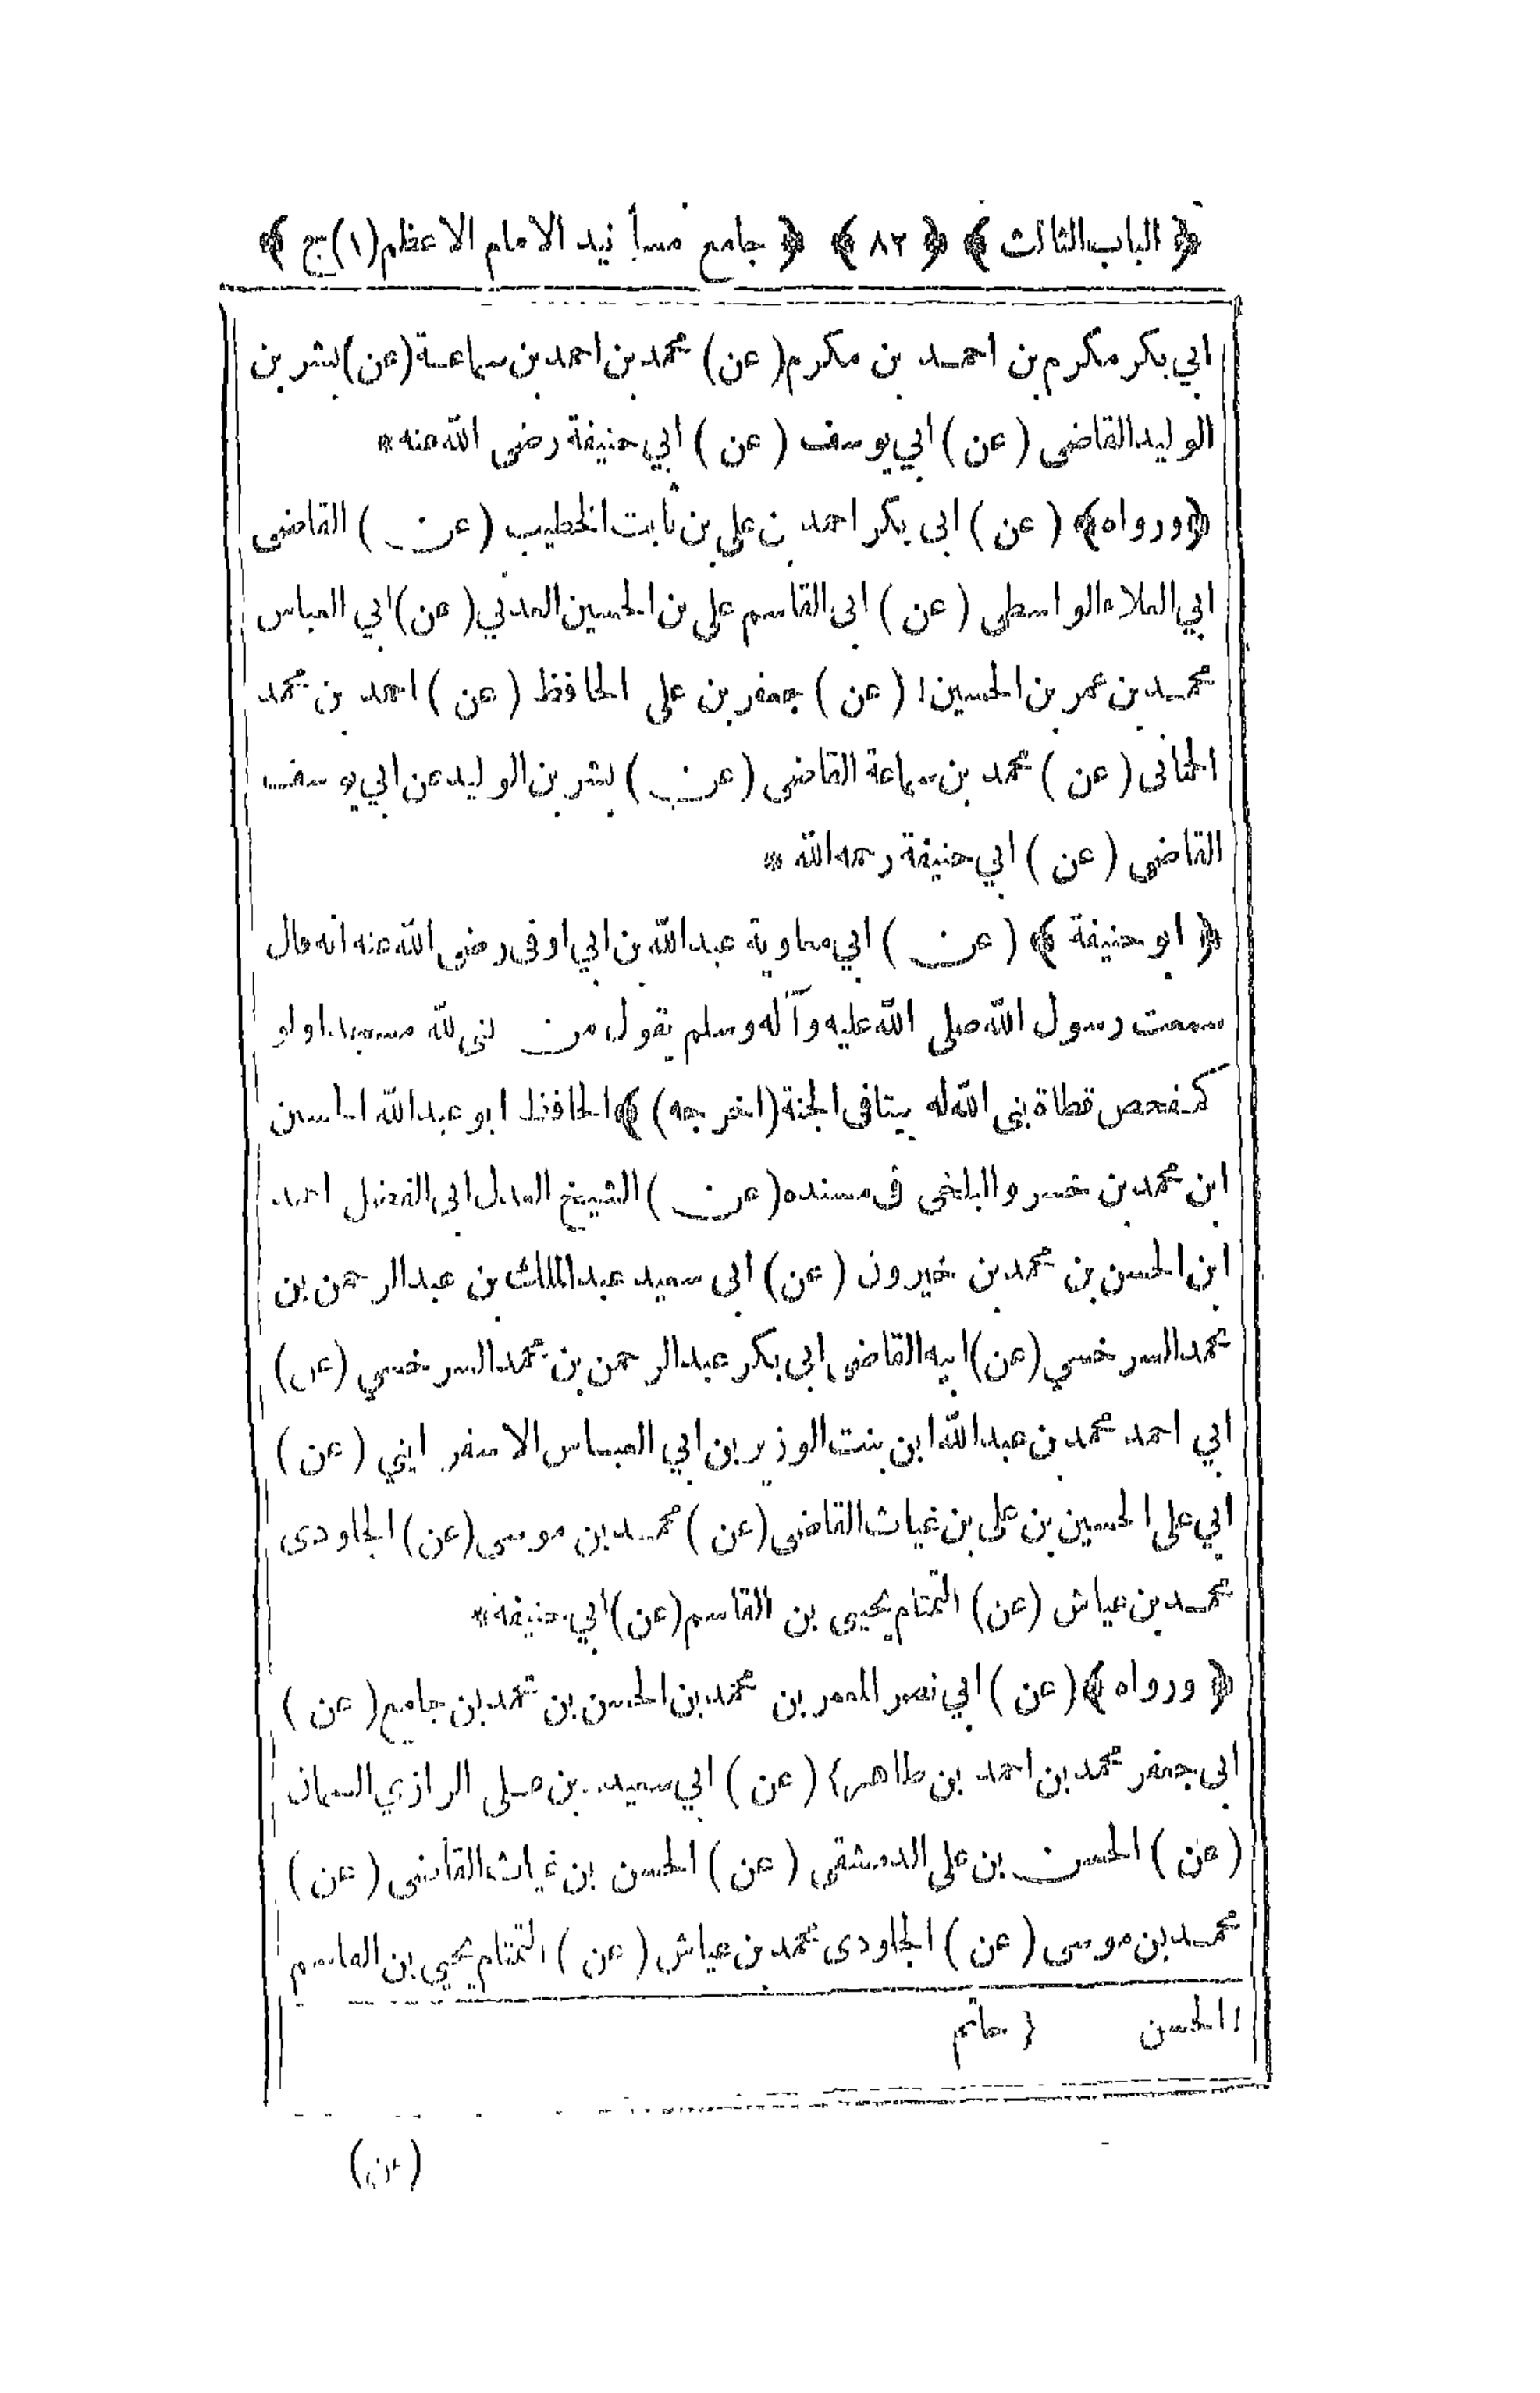 ﴿ الباب الثالث ﴾ ﴿ ٨٢ ﴾ ﴿ جامع مسانيد الامام الاعظم (١) ج ﴾
ابي بكر مكرم بن احمد بن مكرم (عن) محمد بن احمد بن سماعة (عن) بشر بن
الوليد القاضى (عن) ابي يوسف (عن) ابي حنيفة رضى الله عنه *
﴿ورواه﴾ (عن) ابى بكر احمد بن علي بن ثابت الخطيب (عن) القاضى
ابي العلاء الواسطى (عن) ابى القاسم علي بن الحسين العدني (عن) ابي العباس
محمد بن عمر بن الحسين ١ (عن) جعفر بن على الحافظ (عن) احمد بن محمد
الحمانى (عن) محمد بن سماعة القاضى (عن) بشر بن الوليد عن ابي يوسف
القاضى (عن) ابي حنيفة رحمه الله *
﴿ ابو حنيفة ﴾ (عن) ابي معاوية عبد الله بن ابي اوفى رضى الله عنه انه قال
سمعت رسول الله صلى الله عليه وآله وسلم يقول من بنى لله مسجدا ولو
كمفحص قطاة بنى الله له بيتا فى الجنة (اخرجه) ﴾ الحافظ ابو عبد الله الحسين
ابن محمد بن خسرو البلخى فى مسنده (عن) الشيخ العدل ابى الفضل احمد
ابن الحسن بن محمد بن خيرون (عن) ابى سعيد عبد الملك بن عبد الرحمن بن
محمد السرخسي (عن) ابيه القاضى ابى بكر عبد الرحمن بن محمد السرخسي (عن)
ابي احمد محمد بن عبد الله ابن بنت الوزير بن ابي العباس الاسفرايني (عن)
ابي على الحسين بن على بن غياث القاضى (عن) محمد بن موسى (عن) الجلودى
محمد بن عياش (عن) التمتام يحيى بن القاسم (عن) ابي حنيفة *
﴿ ورواه ﴾ (عن) ابي نصر المعمر بن محمد بن الحسن بن محمد بن جامع (عن)
ابى جعفر محمد بن احمد بن طاهر ٢ (عن) ابي سعيد بن علي الرازي السمان
(عن) الحسن بن على الدمشقى (عن) الحسن بن غياث القاضى (عن)
محمد بن موسى (عن) الجلودى محمد بن عياش (عن) التمتام يحيى بن القاسم
١ الحسن ٢ حاتم
(عن)